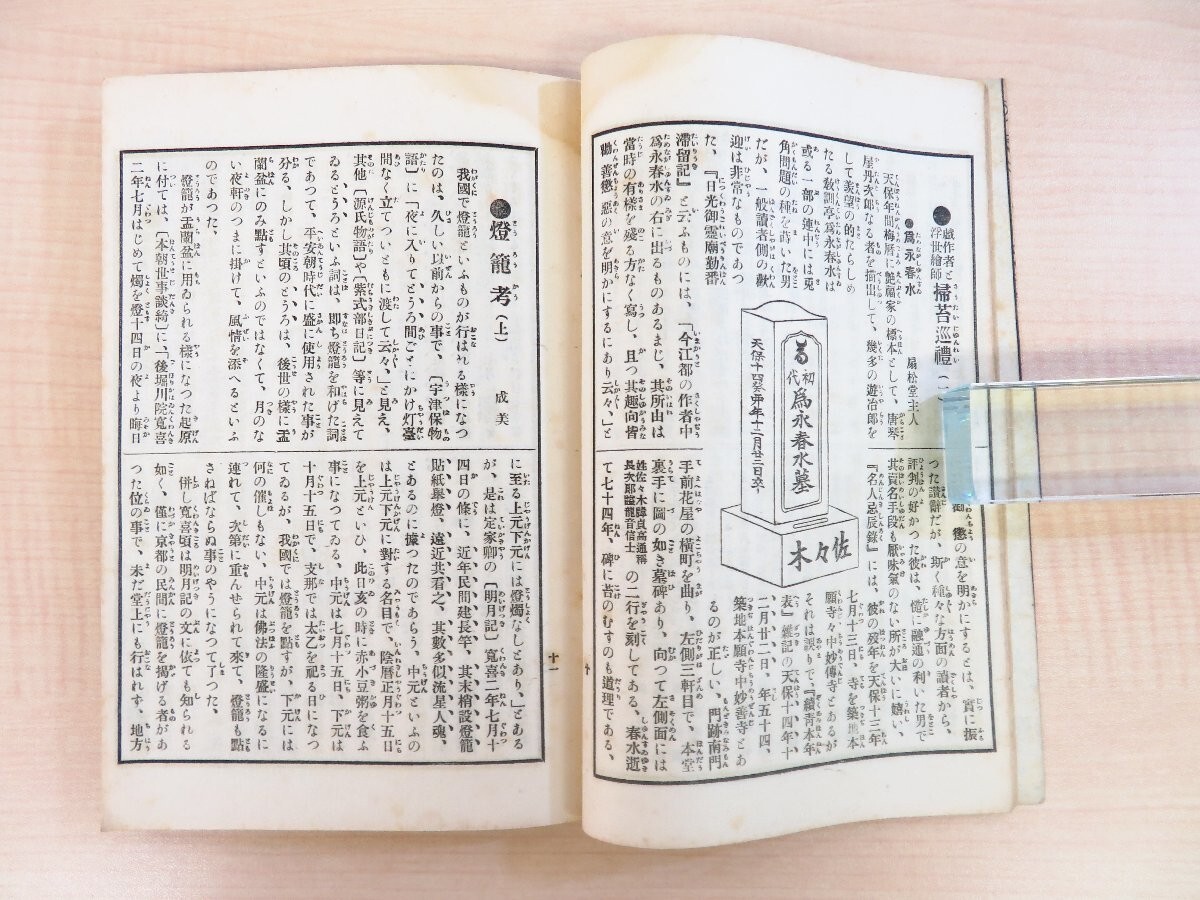 戯作者と
浮世繪師
掃苔巡禮(一)
扇松堂主人
爲永春水
天保年間梅暦に艶福家の標本として、唐琴
屋丹次郎なる者を描出して、幾多の遊冶郎を
して羨望の的たらしめ
たる教訓亭爲永春水は
或る一部の連中には兎
角問題の種を蒔いた男
だが、一般讀者側の歡
迎は非常なものであつ
た、『日光御靈廟勤番
滯留記』と云ふものには、「今江都の作者中
爲永春水の右に出るものあるまじ、其所由は
當時の有樣を殘る方なく寫し、且つ其趣向皆
勸善懲惡の意を明かにするにあり云々、」と
初代
爲永春水墓
天保十四癸卯年十二月廿二日卒
佐々木
懲の意を明かにするとは、實に振
つた讃辭だが、斯く種々な方面の讀者から、
評判の好かつた彼は、僅に融通の利いた男で
其賣名手段も厭味氣のない所が大いに嬉い、
『名人忌辰錄』には、彼の歿年を天保十三年
七月十三日、寺を築地本
願寺々中妙傳寺とあるが
それは誤りで、『續靑本年
表』雜記の天保十四年、十
二月廿二日、年五十四、
築地本願寺中妙善寺とあ
るのが正しい、門跡南門
手前花屋の橫町を曲り、左側三軒目で、本堂
裏手に圖の如き墓碑あり、向つて左側面には
姓佐々木諱貞高通稱
長次郎
龍音信士
の二行を刻してある、春水逝
て七十四年、碑に苔のむすのも道理である、
十
燈籠考(上)
成美
我國で燈籠といふものが行はれる樣になつ
たのは、久しい以前からの事で、〔宇津保物
語〕に「夜に入りてとうろ間ごとにかけ灯臺
間なく立てついともに渡して云々、」と見え、
其他〔源氏物語〕や〔紫式部日記〕等に見えて
ゐるとうろといふ詞は、即ち燈籠を和げた詞
であつて、平安朝時代に盛に使用された事が
分る、しかし其頃のとうろは、後世の樣に盂
蘭盆にのみ點すといふのではなくて、月のな
い夜軒のつまに掛けて、風情を添へるといふ
のであつた。
燈籠が盂蘭盆に用ゐられる樣になつた起原
に付ては、〔本朝世事談綺〕に、「後堀川院寬喜
二年七月はじめて燭を燈十四日の夜より晦日
に至る上元下元には燈燭なしとあり、」とある
が、是は定家卿の〔明月記〕寬喜二年七月十
四日の條に、近年民間建長竿、其末梢設燈籠
貼紙擧燈、遠近共看之、其數多似流星人魂、
とあるのに據つたのであらう、中元といふの
は上元下元に對する名目で、陰暦正月十五日
を上元といひ、此日亥の時に赤小豆粥を食ふ
事になつてゐる、中元は七月十五日、下元は
十月十五日で、支那では太乙を祀る日になつ
てゐるが、我國では燈籠を點すが、下元には
何の催しもない、中元は佛法の隆盛になるに
連れて、次第に重んせられて來て、燈籠も點
さねばならぬ事のやうになつて了つた、
併し寬喜頃は明月記の文に依ても知られる
如く、僅に京都の民間に燈籠を揭げる者があ
つた位の事で、未だ堂上にも行はれず、地方
十一